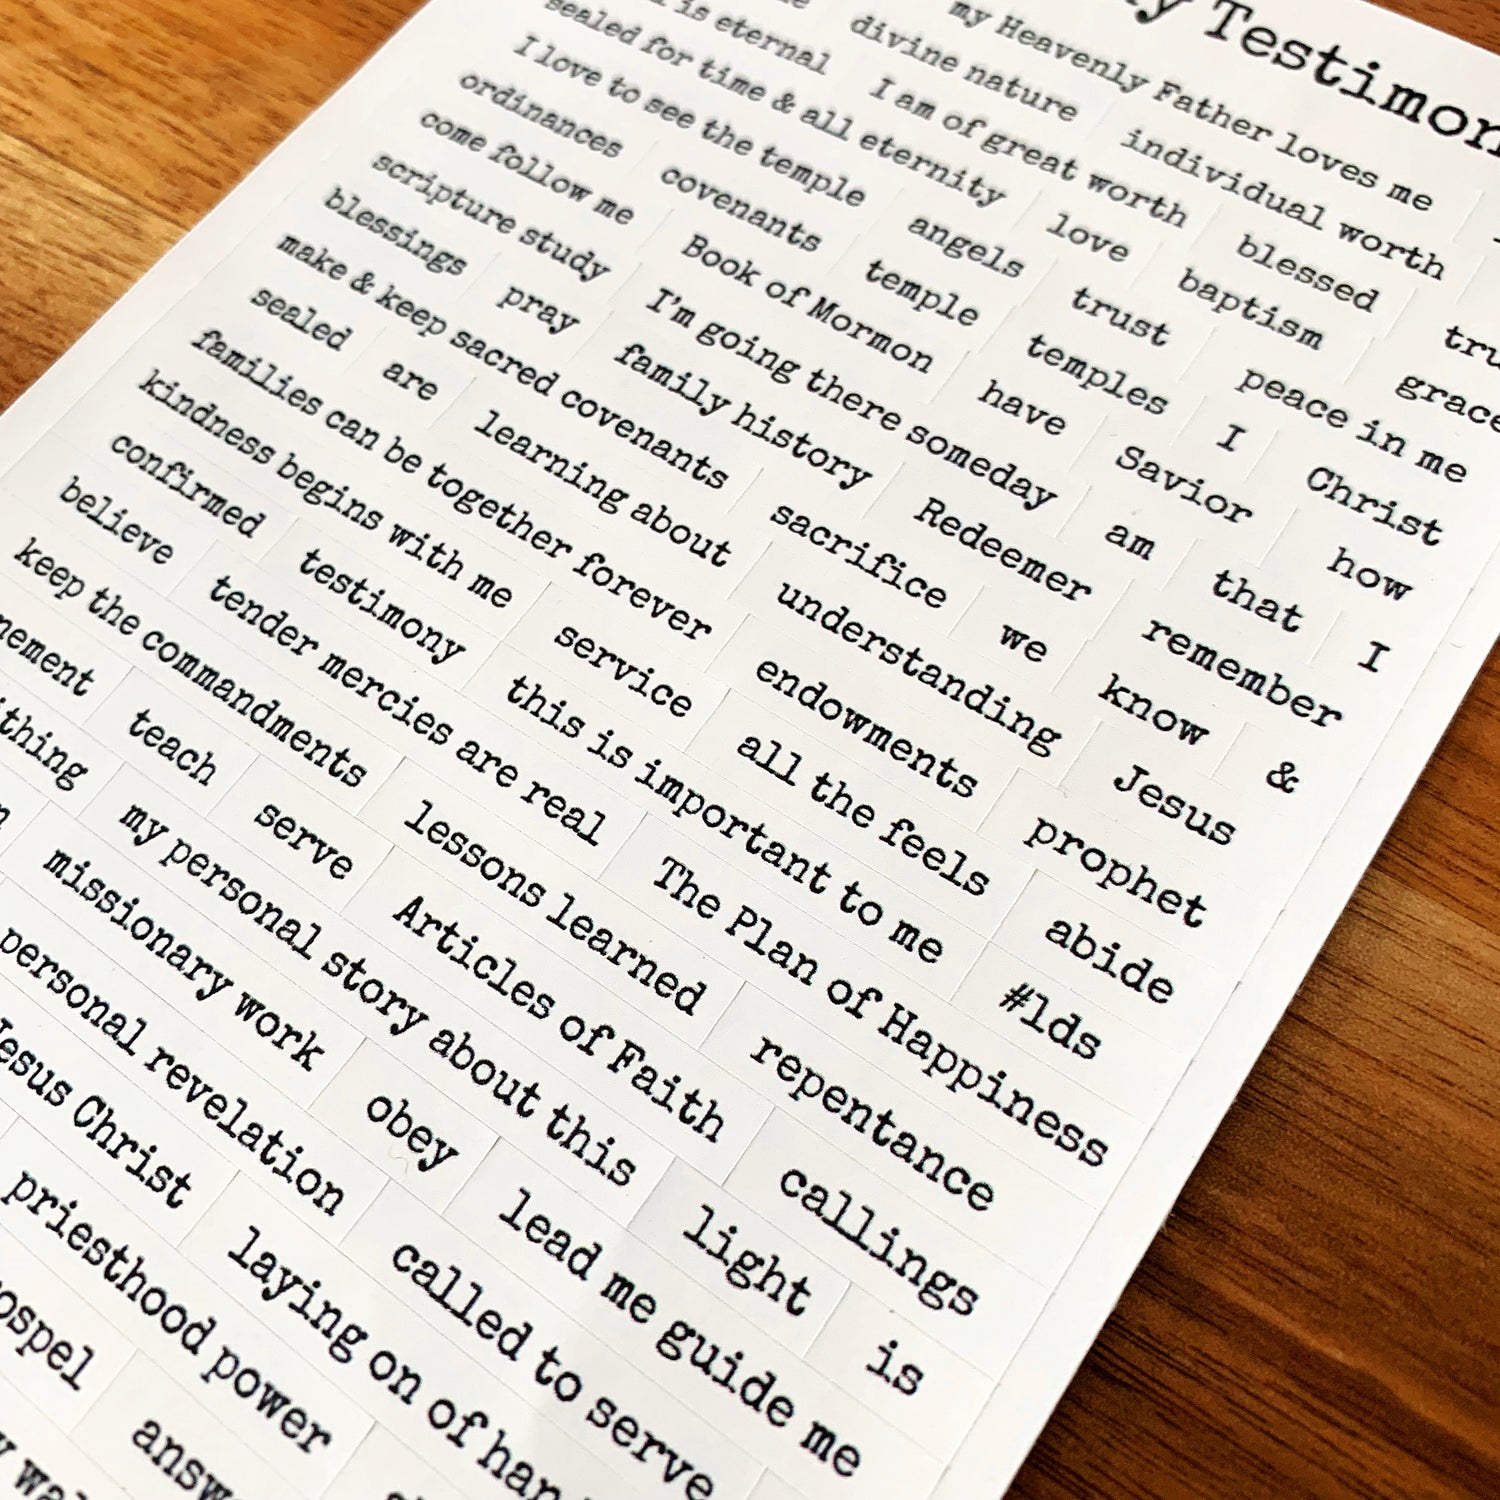 Testimon
my Heavenly Father loves me
divine nature individual worth
is eternal I am of great worth blessed tru
sealed for time & all eternity love baptism grace
I love to see the temple angels trust peace in me
ordinances covenants temple temples I Christ
come follow me Book of Mormon have Savior how
scripture study I'm going there someday am that I
blessings pray family history Redeemer remember
make & keep sacred covenants sacrifice we know &
sealed are learning about understanding Jesus
families can be together forever endowments prophet
kindness begins with me service all the feels abide
confirmed testimony this is important to me #lds
believe tender mercies are real The Plan of Happiness
keep the commandments lessons learned repentance
nement teach serve Articles of Faith callings
thing my personal story about this light is
missionary work obey lead me guide me
personal revelation called to serve
Jesus Christ laying on of han
priesthood power
ospel answ